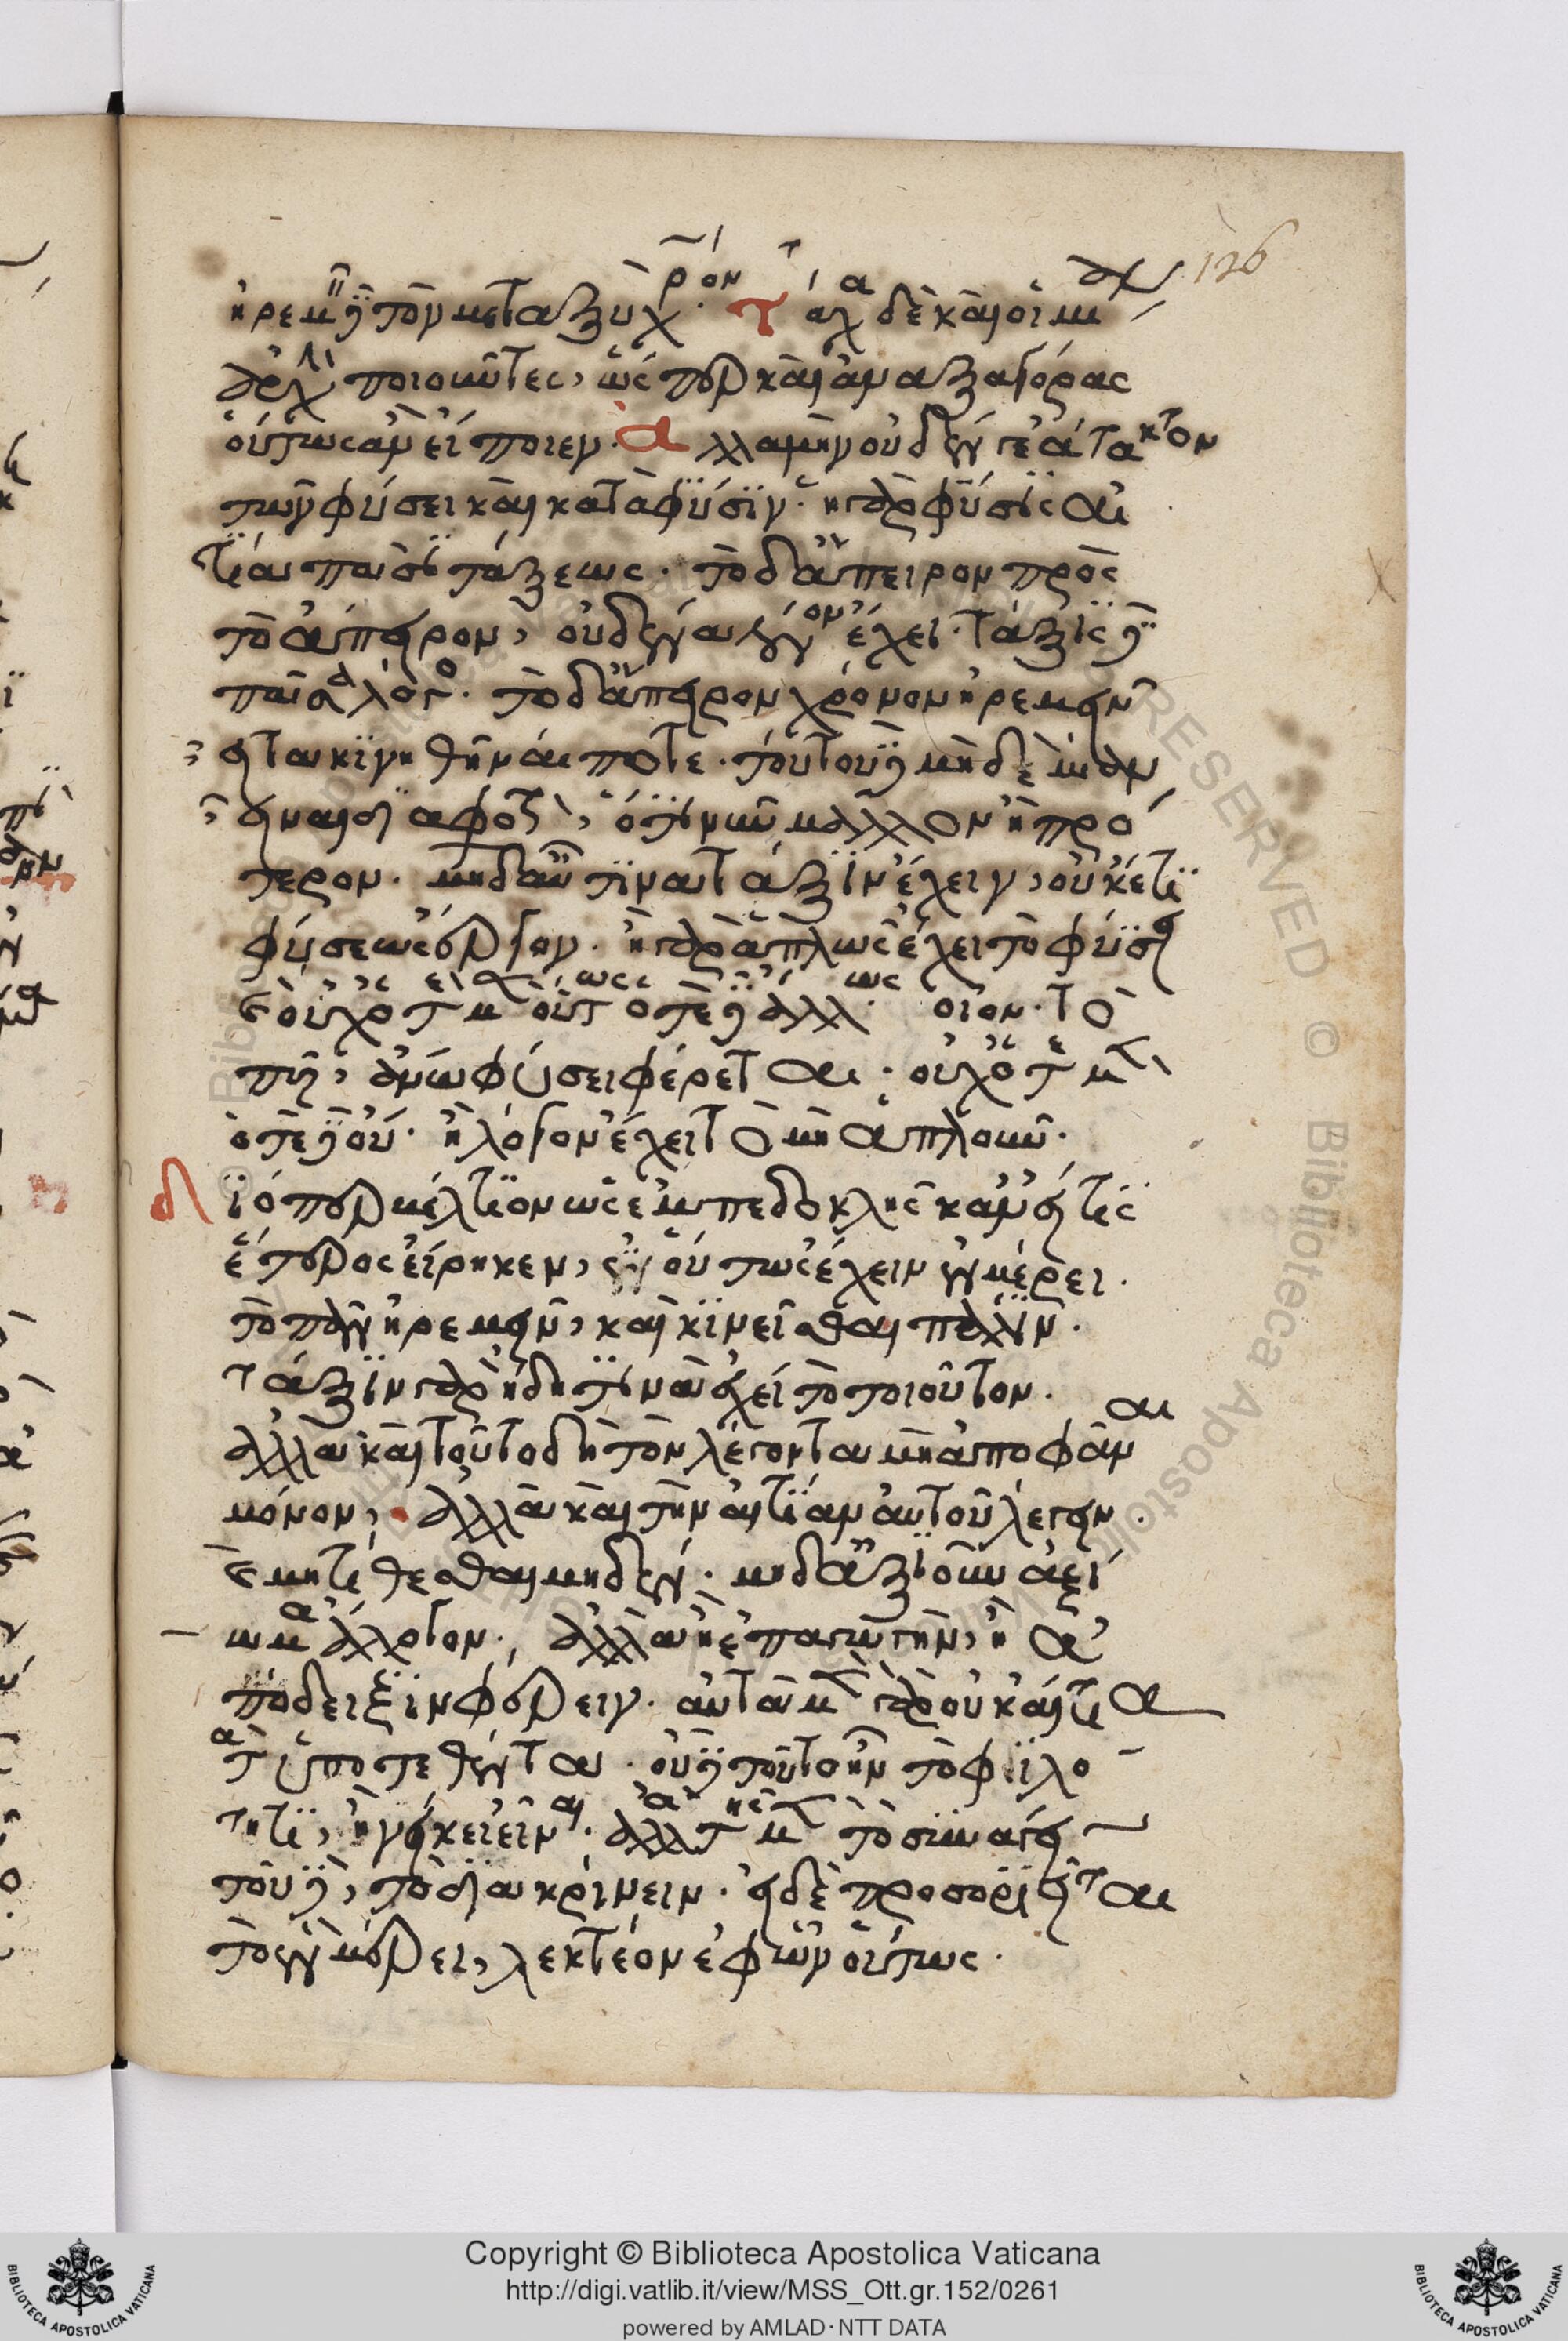 126
ἠρεμεῖ δὲ τὸν μεταξὺ χρόνον. τάχα δὲ καὶ οἱ μίαν
ἀρχὴν ποιοῦντες, ὥσπερ καὶ ἀναξαγόρας
οὕτως ἂν εἴποιεν. ἀλλὰ μὴν οὐδέν γε ἄτακτον
τῶν φύσει καὶ κατὰ φύσιν. ἡ γὰρ φύσις αἰ
τία πᾶσι τάξεως. τὸ δ' ἄπειρον πρὸς
τὸ ἄπειρον, οὐδένα λόγον ἔχει. τάξις δὲ
πᾶσα λόγος. τὸ δ' ἄπειρον χρόνον ἠρεμεῖν
εἶτα κινηθῆναί ποτε. τούτου δὲ μηδεμίαν
εἶναι διαφορὰν, ὅτι νῦν μᾶλλον ἢ πρό
τερον. μηδ' αὖ τινὰ τάξιν ἔχειν, οὐκέτι
φύσεως ἔργον. ἢ γὰρ ἁπλῶς ἔχει τὸ φύσει
καὶ οὐχ ὁτὲ μὲν οὕτως ὁτὲ δὲ ἄλλως. οἷον τὸ
πῦρ, ἄνω φύσει φέρεται. οὐχ ὁτὲ μὲν
ὁτὲ δὲ οὔ. ἢ λόγον ἔχει τὸ μὴ ἁπλοῦν.
διόπερ βέλτιον ὡς ἐμπεδοκλῆς κἂν εἴ τις
ἕτερος εἴρηκεν, οὕτως ἔχειν ἐν μέρει.
τὸ πᾶν ἠρεμεῖν, καὶ κινεῖσθαι πάλιν.
τάξιν γὰρ ἤδη τινὰ ἔχει τὸ τοιοῦτον.
ἀλλὰ καὶ τοῦτο δεῖ τὸν λέγοντα μὴ ἀποφάναι
μόνον, ἀλλὰ καὶ τὴν αἰτίαν αὐτοῦ λέγειν.
καὶ μὴ τίθεσθαι μηδέν. μηδ' ἀξιοῦν ἀξί
ωμα ἄλογον. ἀλλὰ ἢ ἐπαγωγὴν, ἢ ἀ
πόδειξιν φέρειν. αὐτὰ μὲν γὰρ οὐκ αἴτια
τὰ ὑποτεθέντα. οὐδὲ τοῦτο ἦν τὸ φιλό
τητι, ἢ νείκει εἶναι. ἀλλὰ τῆς μὲν τὸ συνάγειν
τοῦ δὲ, τὸ διακρίνειν. εἰ δὲ προσοριεῖται
τὸ ἐν μέρει, λεκτέον ἐφ' ὧν οὕτως.
Copyright © Biblioteca Apostolica Vaticana
http://digi.vatlib.it/view/MSS_Ott.gr.152/0261
powered by AMLAD·NTT DATA